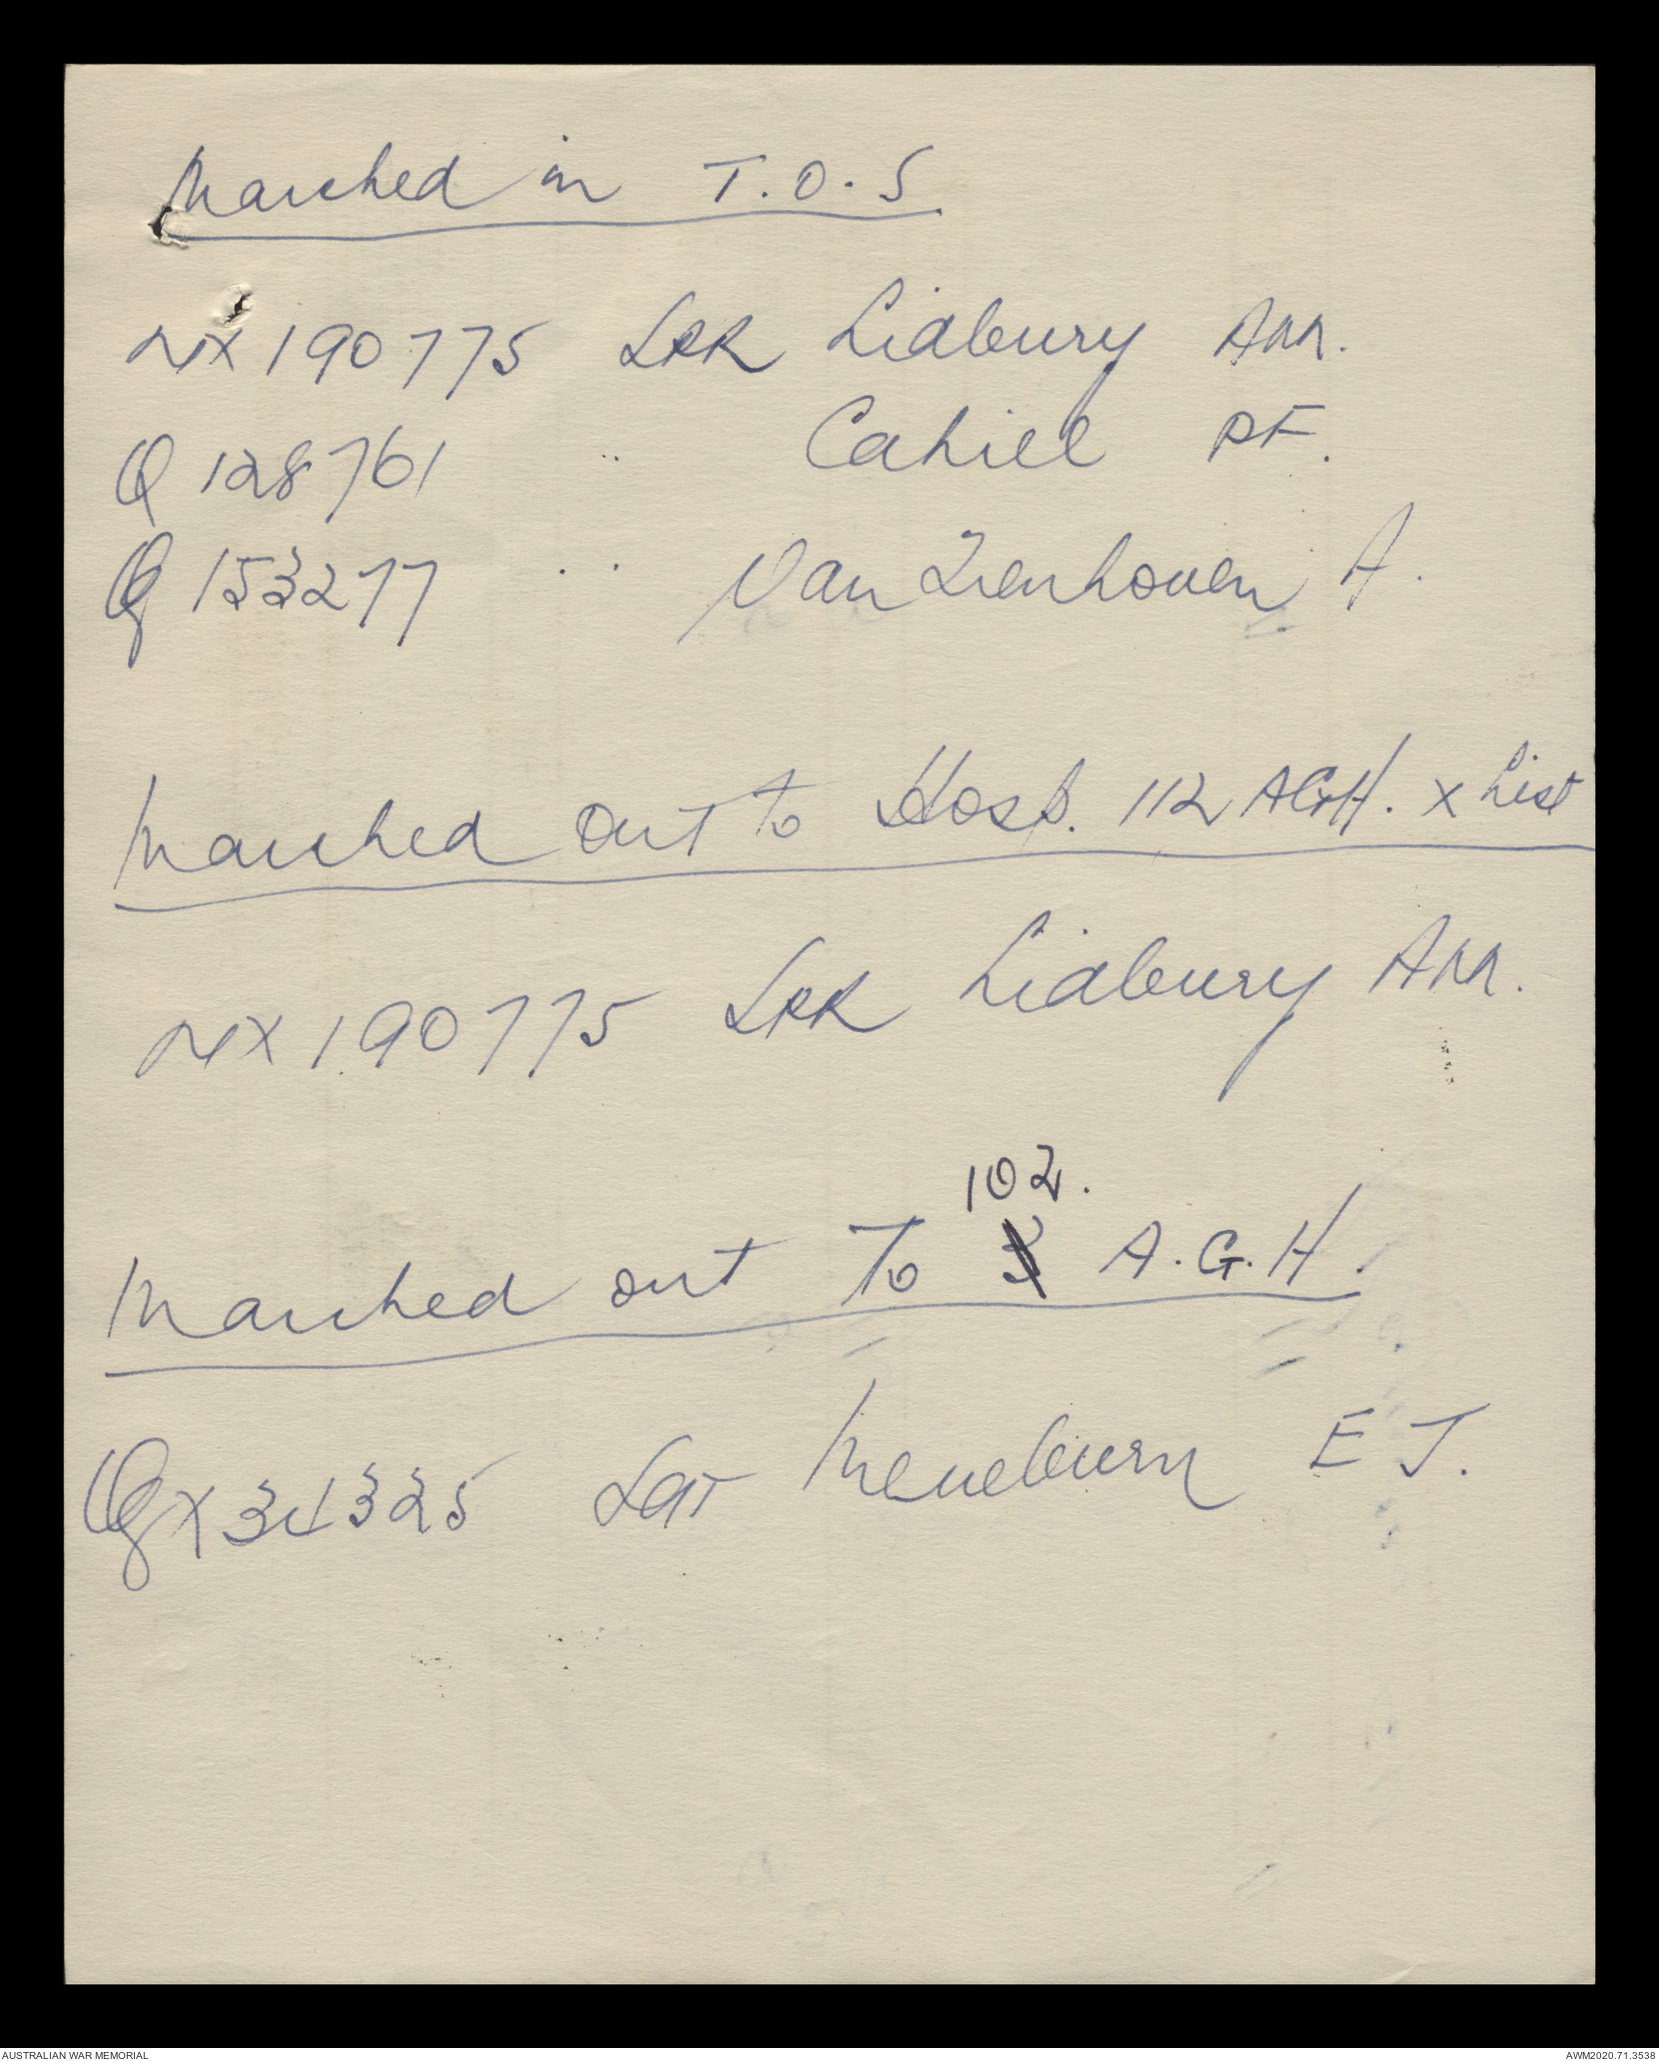 Marched in T.O.S
NX190775 Spr Lidbury AM.
Q128761 .. Cahill PF.
Q153277 .. Van Lienhoven A.
Marched Out To Hosp. 112 AGH. X List
NX190775 Spr Lidbury AM.
102.
Marched out To 3 A.G.H.
QX34325 Sgt Meneburn E J.
AUSTRALIAN WAR MEMORIAL
AWM2020.71.3538